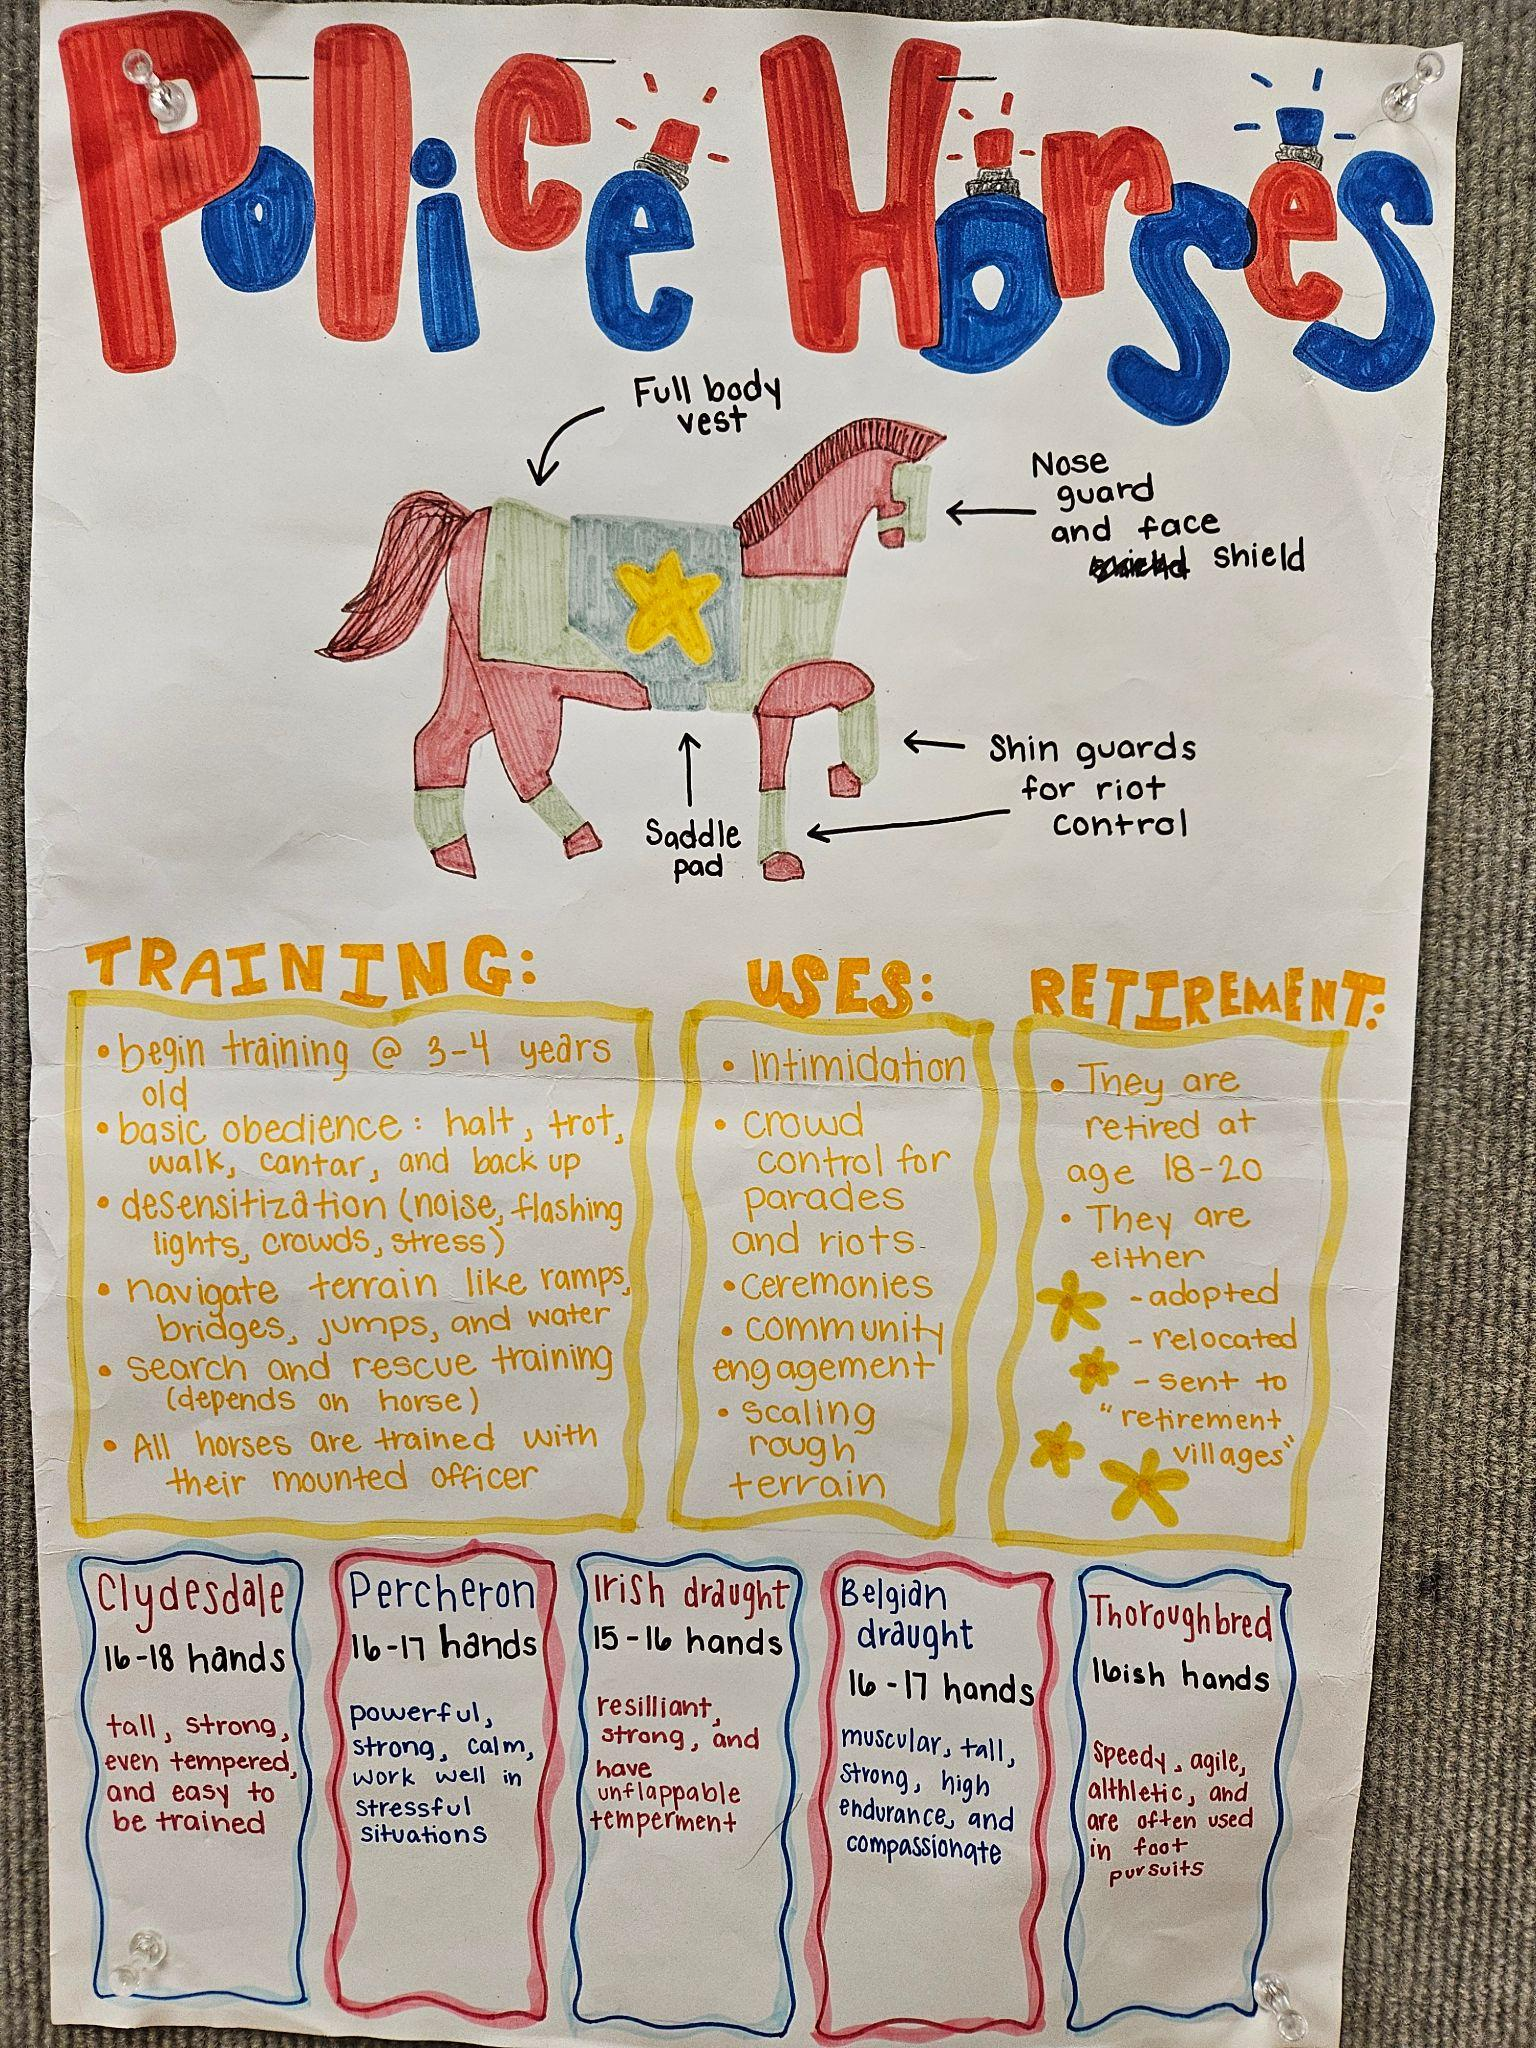 Police Horses
Full body
vest
Nose
guard
and face
shield
Shin guards
for riot
control
Saddle
pad
TRAINING:
• begin training @ 3-4 years
old
• basic obedience: halt, trot,
walk, cantar, and back up
• desensitization (noise, flashing
lights, crowds, stress)
• navigate terrain like ramps,
bridges, jumps, and water
• search and rescue training
(depends on horse)
• All horses are trained with
their mounted officer
USES:
• Intimidation
• crowd
control for
parades
and riots.
• ceremonies
• community
engagement
• scaling
rough
terrain
RETIREMENT:
• They are
retired at
age 18-20
• They are
either
- adopted
- relocated
- sent to
"retirement
villages"
Clydesdale
16-18 hands
tall, strong,
even tempered,
and easy to
be trained
Percheron
16-17 hands
powerful,
strong, calm,
work well in
stressful
situations
Irish draught
15-16 hands
resilliant,
strong, and
have
unflappable
temperment
Belgian
draught
16-17 hands
muscular, tall,
strong, high
endurance, and
compassionate
Thoroughbred
16ish hands
speedy, agile,
althletic, and
are often used
in foot
pursuits